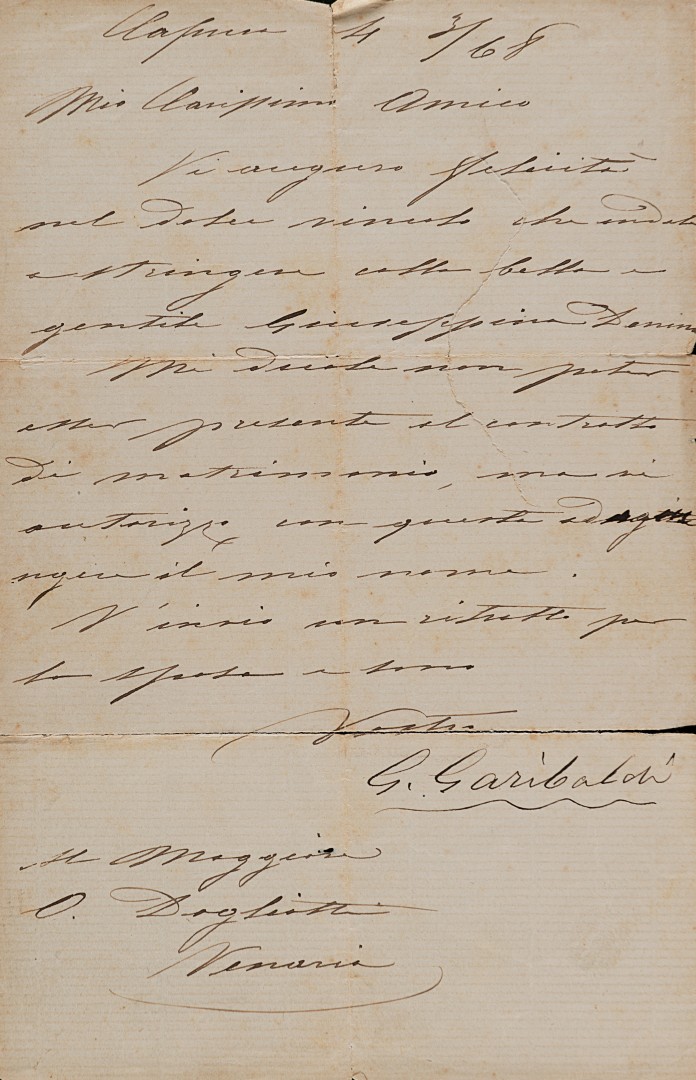 Caprera 4 3/68
Mio Carissimo Amico
Vi auguro felicità
nel dolce vincolo che andate
a stringere colla bella e
gentile Giuseppina Denina
Mi duole non poter
esser presente al contratto
di matrimonio, ma vi
autorizzo con questa ad
ngere il mio nome.
V'invio un ritratto per
la sposa e sono
Vostro
G. Garibaldi
Al Maggiore
O. Dogliotti
Venaria